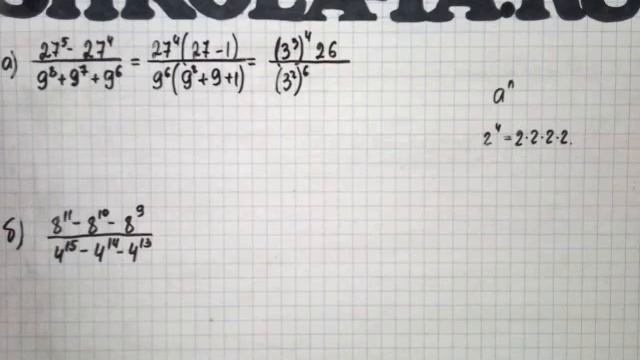 SHKOLA-1A.RU
а) (27⁵ - 27⁴)/(9⁸ + 9⁷ + 9⁶) = (27⁴(27 - 1))/(9⁶(9² + 9 + 1)) = ((3³)⁴ 26)/((3²)⁶
aⁿ
2⁴ = 2·2·2·2.
б) (8¹¹ - 8¹⁰ - 8⁹)/(4¹⁵ - 4¹⁴ - 4¹³)